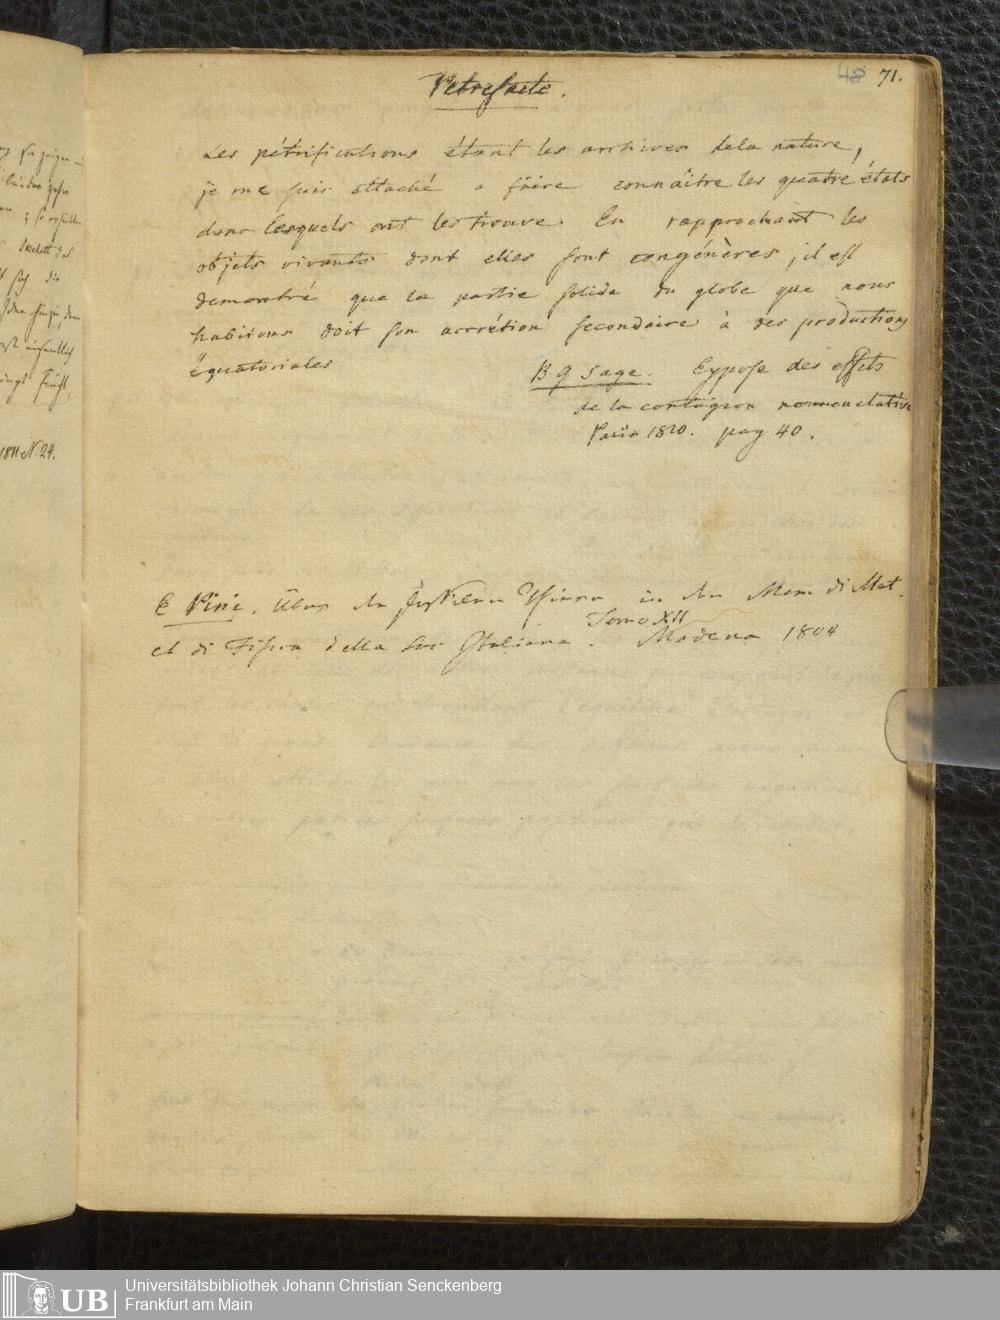 48 71.
Petrefacte.
Les pétrifications étant les archives de la nature,
je me suis attaché a faire connaître les quatre états
dans lesquels ont les trouve. En rapprochant les
objets vivants dont elles sont congénères, il est
demontré que la partie solide du globe que nous
habitons doit son accrétion secondaire à des productions
équatoriales
B G Sage. Expose des effets
de la contagion nomenclative
Paris 1810. pag 40.
E Pini. Über die fossilen Thiere in den Mem di Mat.
et di Fisica della Soc Italiana. Tomo XII Modena 1804
1811 N. 24.
Universitätsbibliothek Johann Christian Senckenberg
Frankfurt am Main
UB